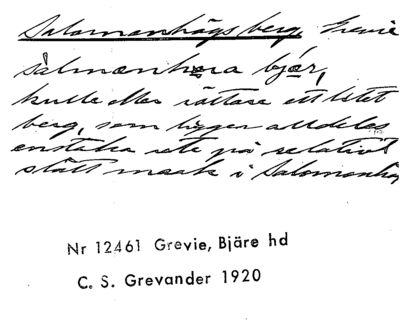 Salomonhögs berg, Grevie
sålmœnhøra bjœr,
kulle eller rättare ett litet
berg, som ligger alldeles
enstaka ute på relativt
slätt mark i Salomonhög
Nr 12461 Grevie, Bjäre hd
C. S. Grevander 1920